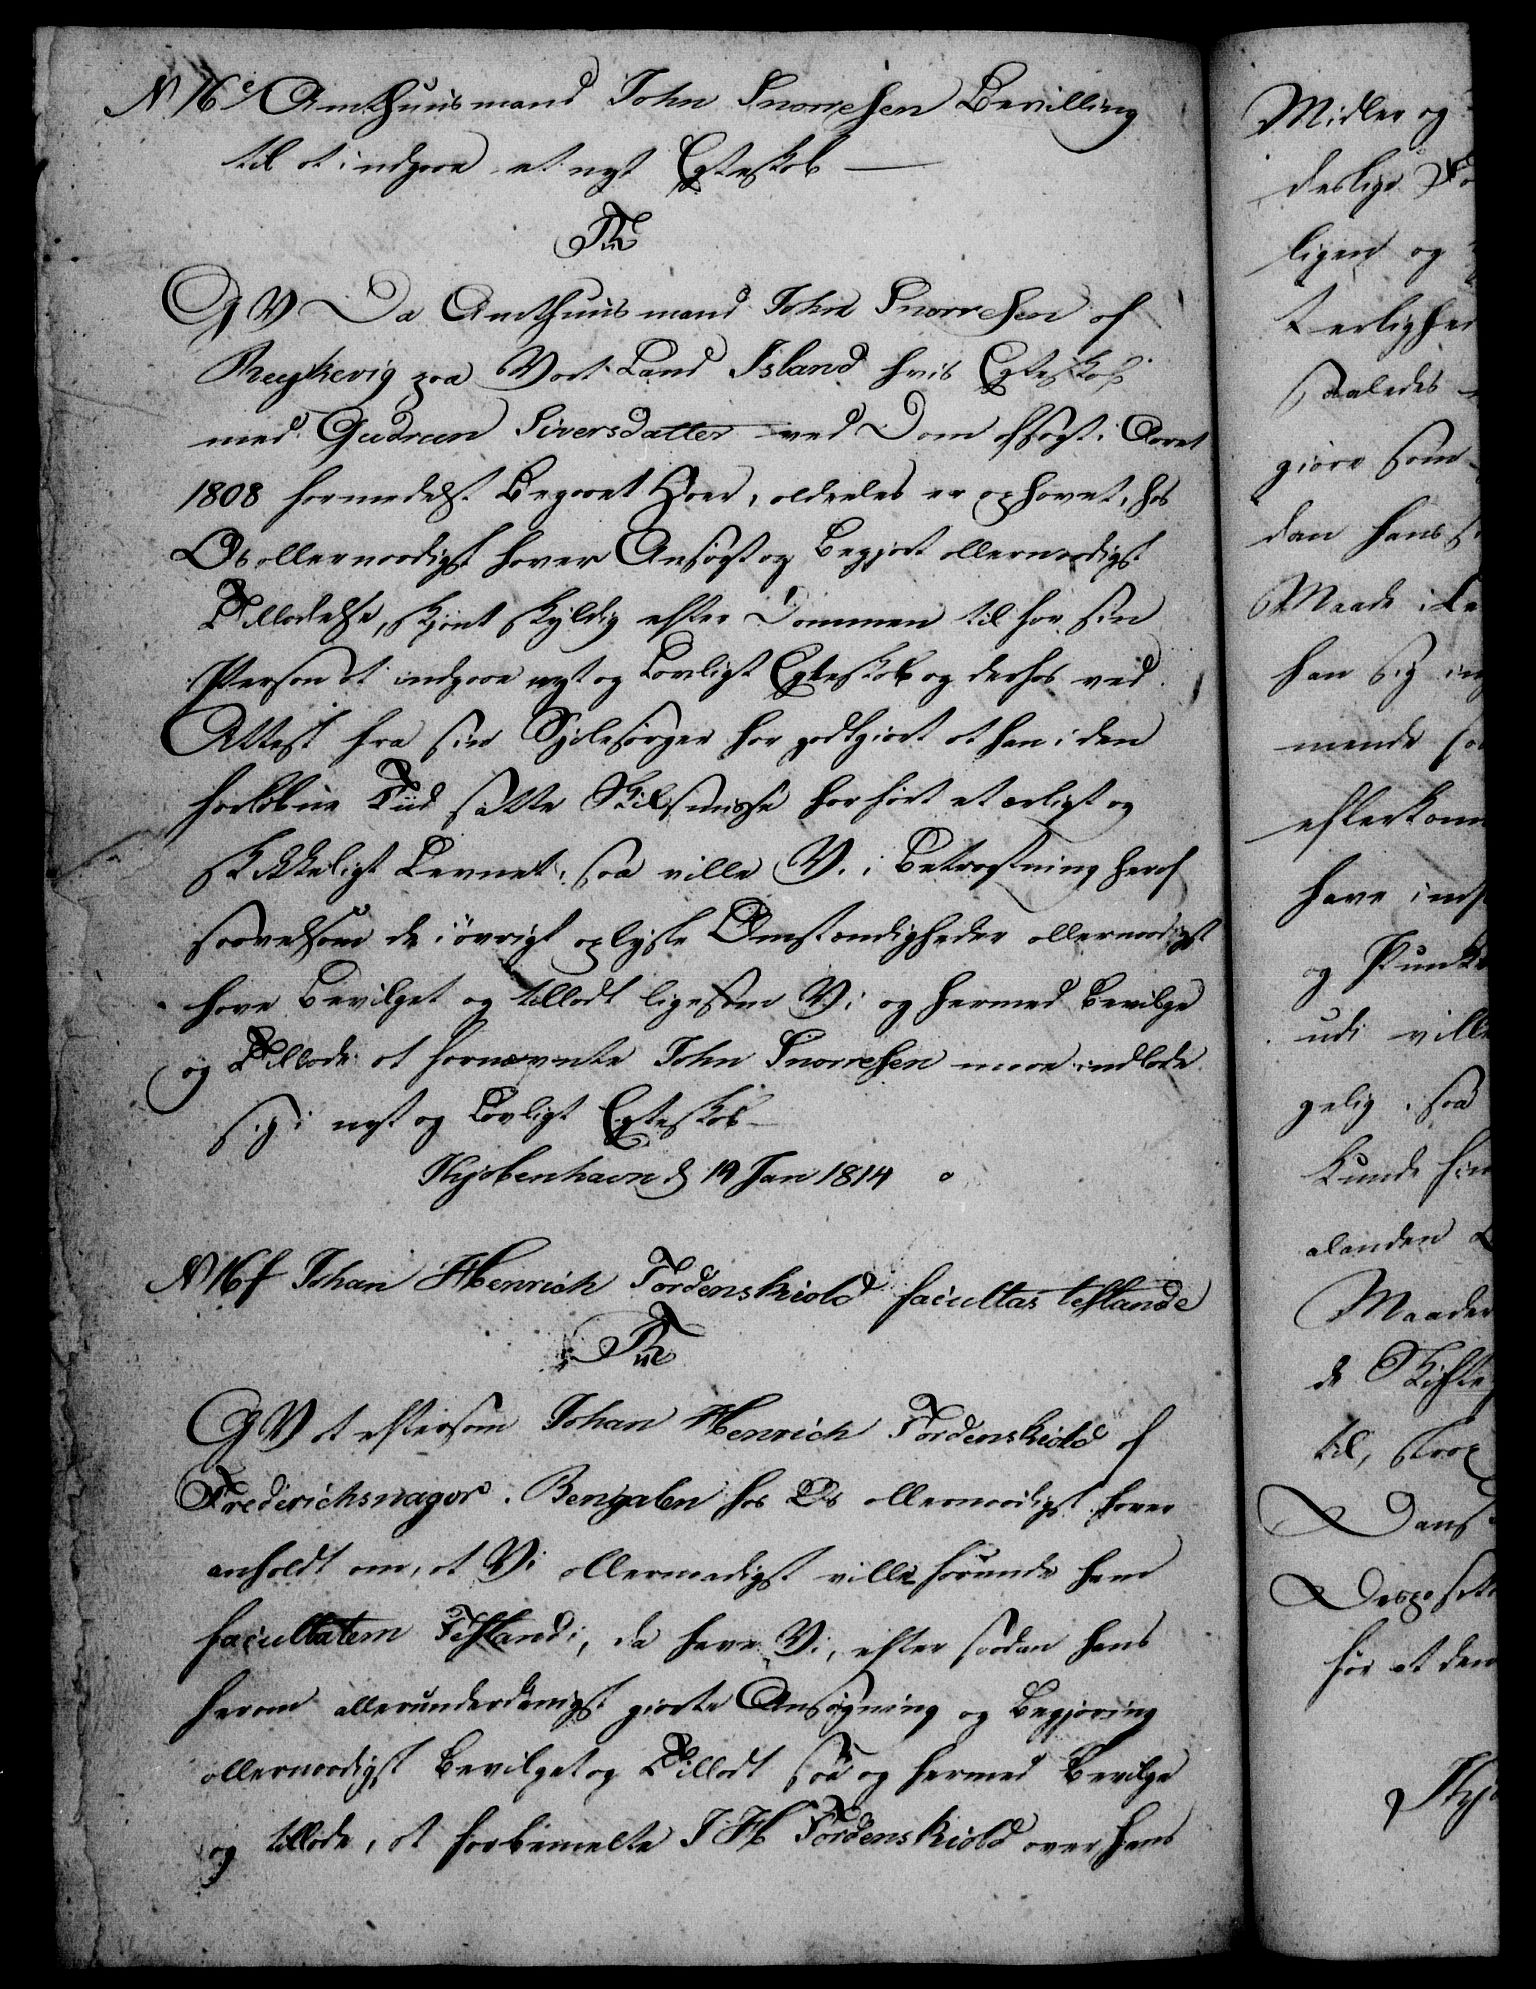 N 16e Amthuusmand John Snorresen Bevilling
til at indgaae et nyt Egteskab
G V Da Amthuusmand John Snorresen af
Reykevig paa Vort Land Island hvis Egteskab
med Gudrun Siversdatter ved Dom afsagt i Aaret
1808 formedelst Begaaet Hoer, aldeeles er ophævet, hos
Os allernaadigst haver Ansøgt og Begjært allernaadigst
Tilladelse, skjønt skyldig efter Dommen til for sin
Person at indgaae nyt og Lovligt Egteskab og derhos ved
Attest fra sin Sjælesørger har godtgjort at han i den
forløbne Tiid siden Skilsmisse har ført et ærligt og
skikkeligt Levnet, saa ville V. i Betragtning heraf
saavelsom de iøvrigt oplyste Omstændigheder allernaadigst
have Bevilget og tilladt ligesom Vi og hermed Bevilge
og Tillade at fornævnte John Snorresen maae indlade
sig i nyt og Lovligt Egteskab
Kjøbenhavn d 14 Jan 1814
N 16f Johan Henrich Tordenskiold facultas testande
G V at eftersom Johan Henrich Tordenskiold af
Frederichsnagor i Bengalen hos Os allernaadigst haver
anholdt om, at Vi allernaadigst ville forunde ham
facultatem Testandi, da have Vi, efter saadan hans
herom allerunderdanigst giorte Ansøgning og Begjæring
allernaadigst Bevilget og Tilladt saa og hermed Bevilge
og tillade, at forbemelte J H Tordenskiold over hans
Midler og
deslige
ligen og
saaledes
giøre som
dan hans
Maade i
han sig
mende
efterkom
have
og Punkt
udi ville
gelig, saa
kunde
alanden
Maader
de Skifte
til, strax
Dans
Disposit
for at den
Kjø